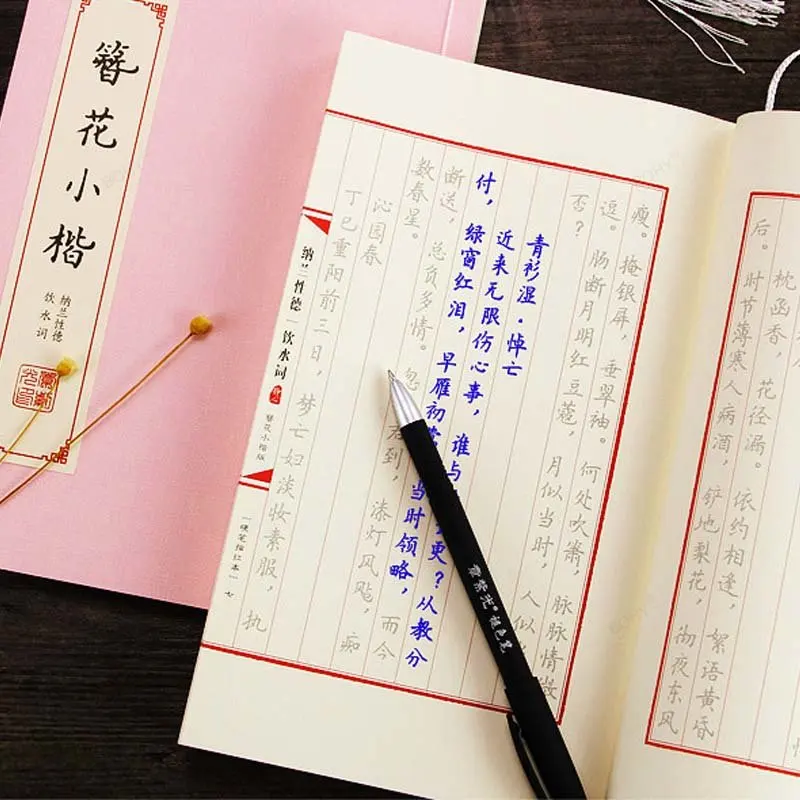 簪花小楷
纳兰性德
饮水词
枕函香，花径漏。依约相逢，絮语黄昏
后。时节薄寒人病酒，铲地梨花，彻夜东风
瘦。掩银屏，垂翠袖。何处吹箫，脉脉情微
逗。肠断月明红豆蔻，月似当时，人似
否？
青衫湿·悼亡
近来无限伤心事，谁与更？从教分
付，绿窗红泪，早雁初当时领略，而今
断送，总负多情。忽君到，漆灯风飐，痴
数春星。
沁园春
丁巳重阳前三日，梦亡妇淡妆素服，执
纳兰性德｜饮水词
簪花小楷版
「硬笔描红本」七
褪色笔